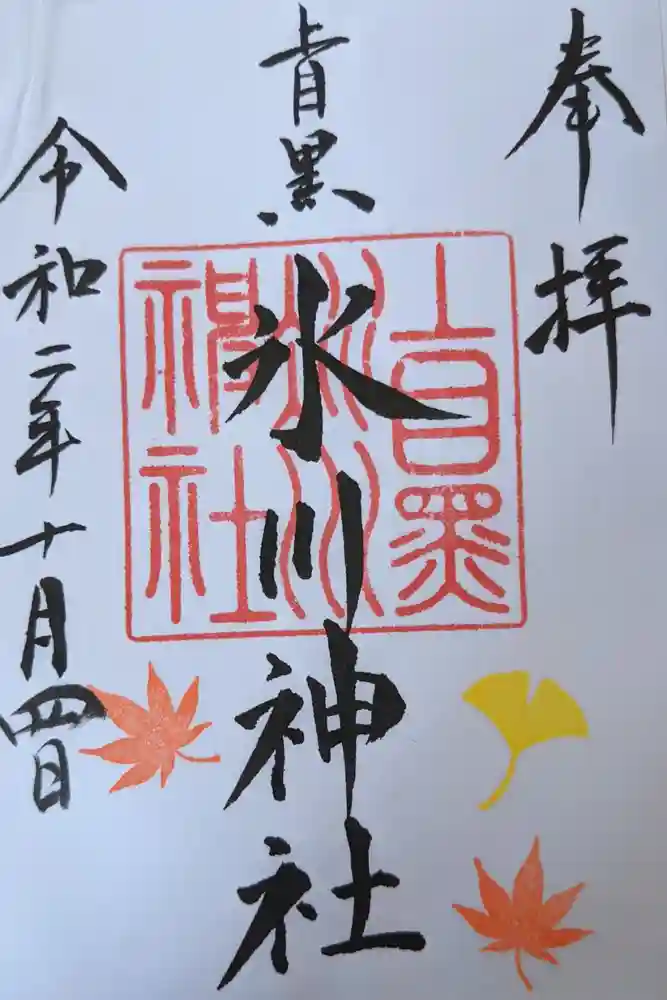 奉拝
上目黒
氷川神社
上目黒
氷川
神社
令和二年十月四日